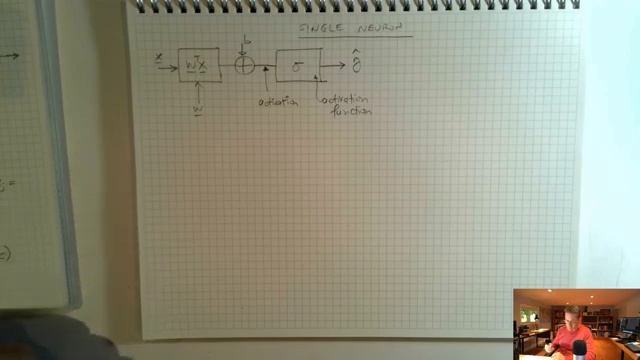 SINGLE NEURON
b
x wᵀx ⊕ σ ŷ
w activation activation
function